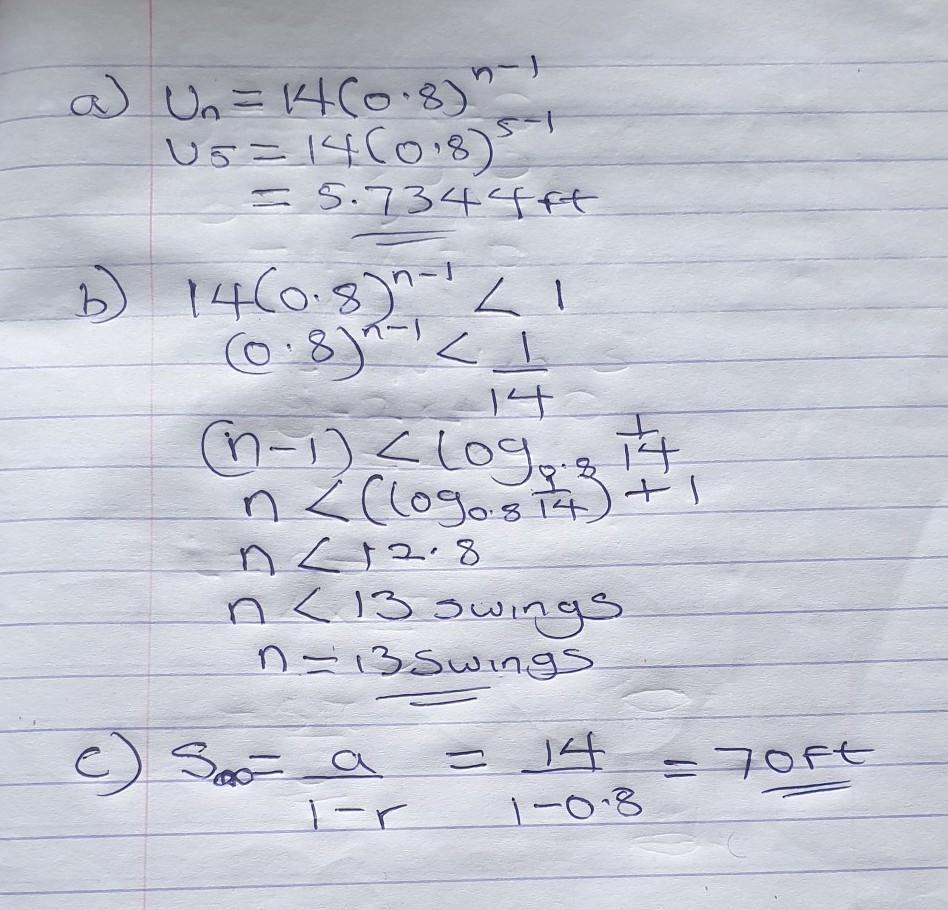 a) Un = 14(0.8)^n-1
U5 = 14(0.8)^5-1
= 5.7344ft
b) 14(0.8)^n-1 < 1
(0.8)^n-1 < 1/14
(n-1) < log_0.8 1/14
n < (log_0.8 1/14) + 1
n < 12.8
n < 13 swings
n = 13 swings
c) S∞ = a/1-r = 14/1-0.8 = 70ft